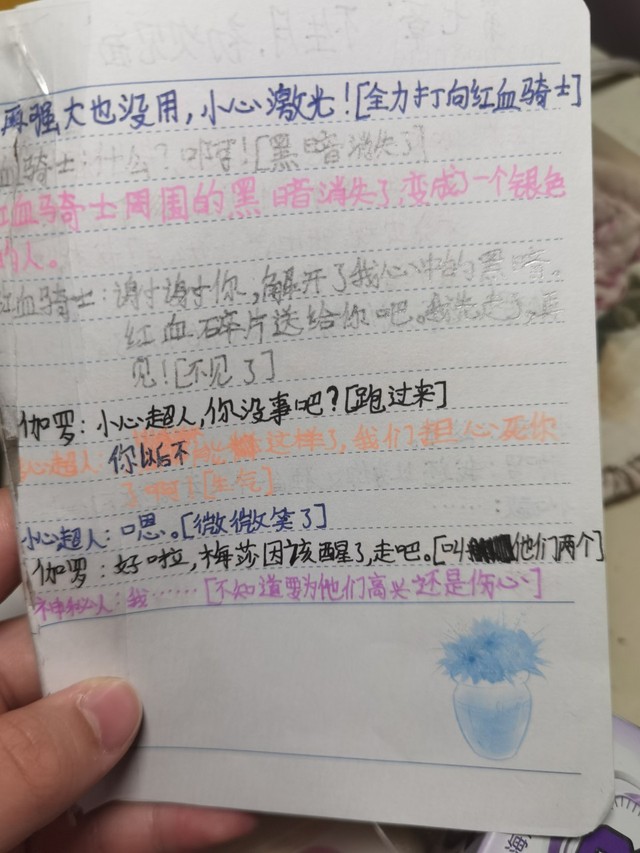 再强大也没用，小心激光！[全力打向红血骑士]
血骑士：什么？咿呀![黑暗消失了]
红血骑士周围的黑暗消失了,变成了一个银色
的人。
红血骑士：谢谢你,解开了我心中的黑暗。
红血碎片送给你吧。我先走了,再
见！[不见了]
伽罗：小心超人,你没事吧？[跑过来]
心超人：你以后不 这样了,我们担心死你
了啊！[生气]
小心超人：嗯。[微微笑了]
伽罗：好啦,梅莎因该醒了,走吧。[叫 他们两个]
神秘人：我……[不知道要为他们高兴还是伤心]